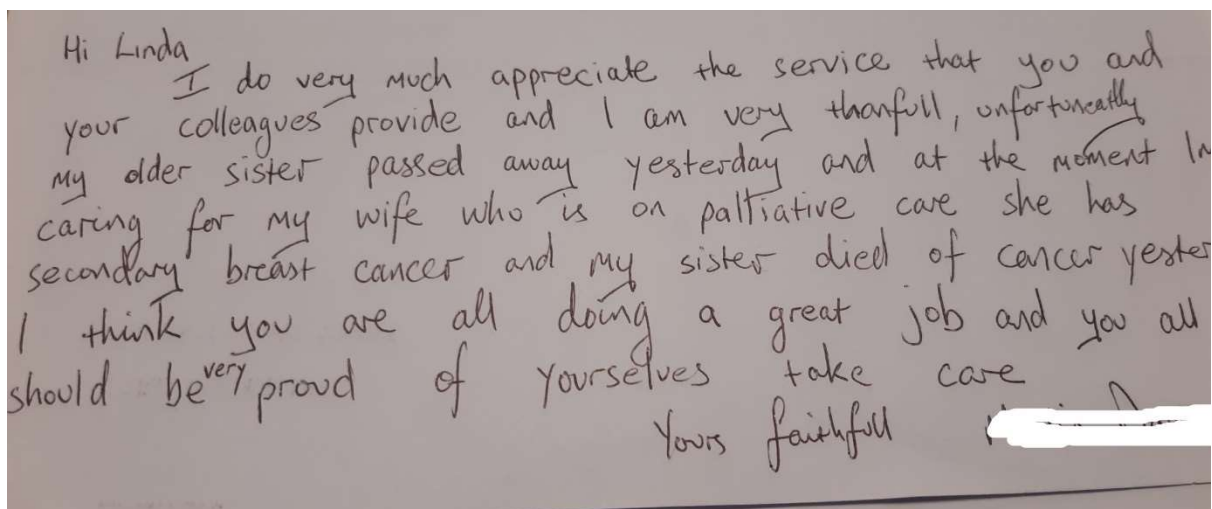 Hi Linda
I do very much appreciate the service that you and
your colleagues provide and I am very thanfull, unfortuneatly
my older sister passed away yesterday and at the moment Im
caring for my wife who is on palliative care she has
secondary breast cancer and my sister died of cancer yester
I think you are all doing a great job and you all
should be very proud of yourselves take care
Yours faithfull